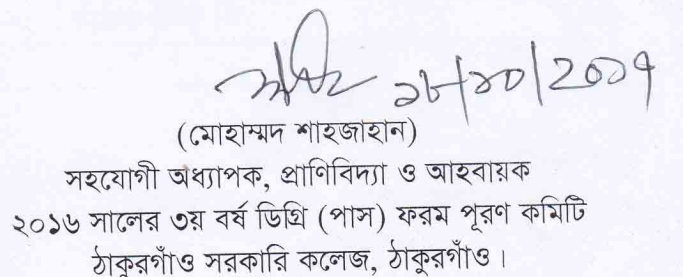 ১৮/১০/2০১৭
(মোহাম্মদ শাহজাহান)
সহযোগী অধ্যাপক, প্রাণিবিদ্যা ও আহবায়ক
২০১৬ সালের ৩য় বর্ষ ডিগ্রি (পাস) ফরম পূরণ কমিটি
ঠাকুরগাঁও সরকারি কলেজ, ঠাকুরগাঁও।